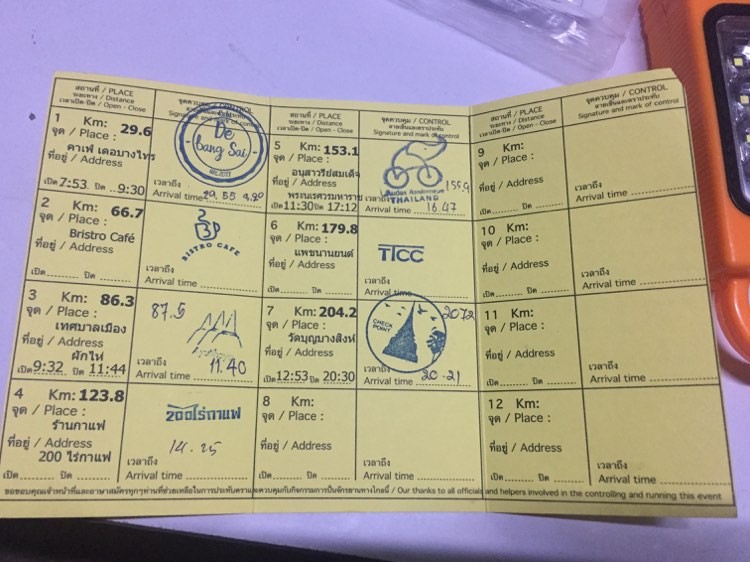 สถานที่ / PLACE
ระยะทาง / Distance
เวลาเปิด-ปิด / Open - Close
จุดควบคุม / CONTROL
ลายเซ็นและตราประทับ
Signature and mark of control
1 Km: 29.6
จุด / Place :
คาเฟ่ เดอบางไทร
ที่อยู่ / Address
เปิด 7:53 ปิด 9:30
Cafe
De
Bang Sai
เวลาถึง
Arrival time 29.55 9.20
2 Km: 66.7
จุด / Place :
Bristro Café
ที่อยู่ / Address
เปิด ปิด
BISTRO CAFE
เวลาถึง
Arrival time
3 Km: 86.3
จุด / Place :
เทศบาลเมือง
ที่อยู่ / Address
ผักไห่
เปิด 9:32 ปิด 11:44
87.5
เวลาถึง
Arrival time 11.40
4 Km: 123.8
จุด / Place :
ร้านกาแฟ
ที่อยู่ / Address
200 ไร่กาแฟ
เปิด ปิด
200ไร่กาแฟ
14.25
เวลาถึง
Arrival time
สถานที่ / PLACE
ระยะทาง / Distance
เวลาเปิด-ปิด / Open - Close
จุดควบคุม / CONTROL
ลายเซ็นและตราประทับ
Signature and mark of control
5 Km: 153.1
จุด / Place :
อนุสาวรีย์สมเด็จ
ที่อยู่ / Address
พระนเรศวรมหาราช
เปิด 11:30 ปิด 17:12
Randonneurs
THAILAND
155.9
เวลาถึง
Arrival time 16.47
6 Km: 179.8
จุด / Place :
แพชนานยนต์
ที่อยู่ / Address
เปิด ปิด
TTCC
เวลาถึง
Arrival time
7 Km: 204.2
จุด / Place :
วัดบุญบางสิงห์
ที่อยู่ / Address
เปิด 12:53 ปิด 20:30
CHECK
POINT
207.2
เวลาถึง
Arrival time 20-21
8 Km:
จุด / Place :
ที่อยู่ / Address
เปิด ปิด
เวลาถึง
Arrival time
สถานที่ / PLACE
ระยะทาง / Distance
เวลาเปิด-ปิด / Open - Close
จุดควบคุม / CONTROL
ลายเซ็นและตราประทับ
Signature and mark of control
9 Km:
จุด / Place :
ที่อยู่ / Address
เปิด ปิด
เวลาถึง
Arrival time
10 Km:
จุด / Place :
ที่อยู่ / Address
เปิด ปิด
เวลาถึง
Arrival time
11 Km:
จุด / Place :
ที่อยู่ / Address
เปิด ปิด
เวลาถึง
Arrival time
12 Km:
จุด / Place :
ที่อยู่ / Address
เปิด ปิด
เวลาถึง
Arrival time
ขอขอบคุณเจ้าหน้าที่และอาสาสมัครทุกๆท่านที่ช่วยเหลือในการประทับตราและควบคุมกับกิจกรรมการปั่นจักรยานทางไกลนี้ / Our thanks to all officials and helpers involved in the controlling and running this event